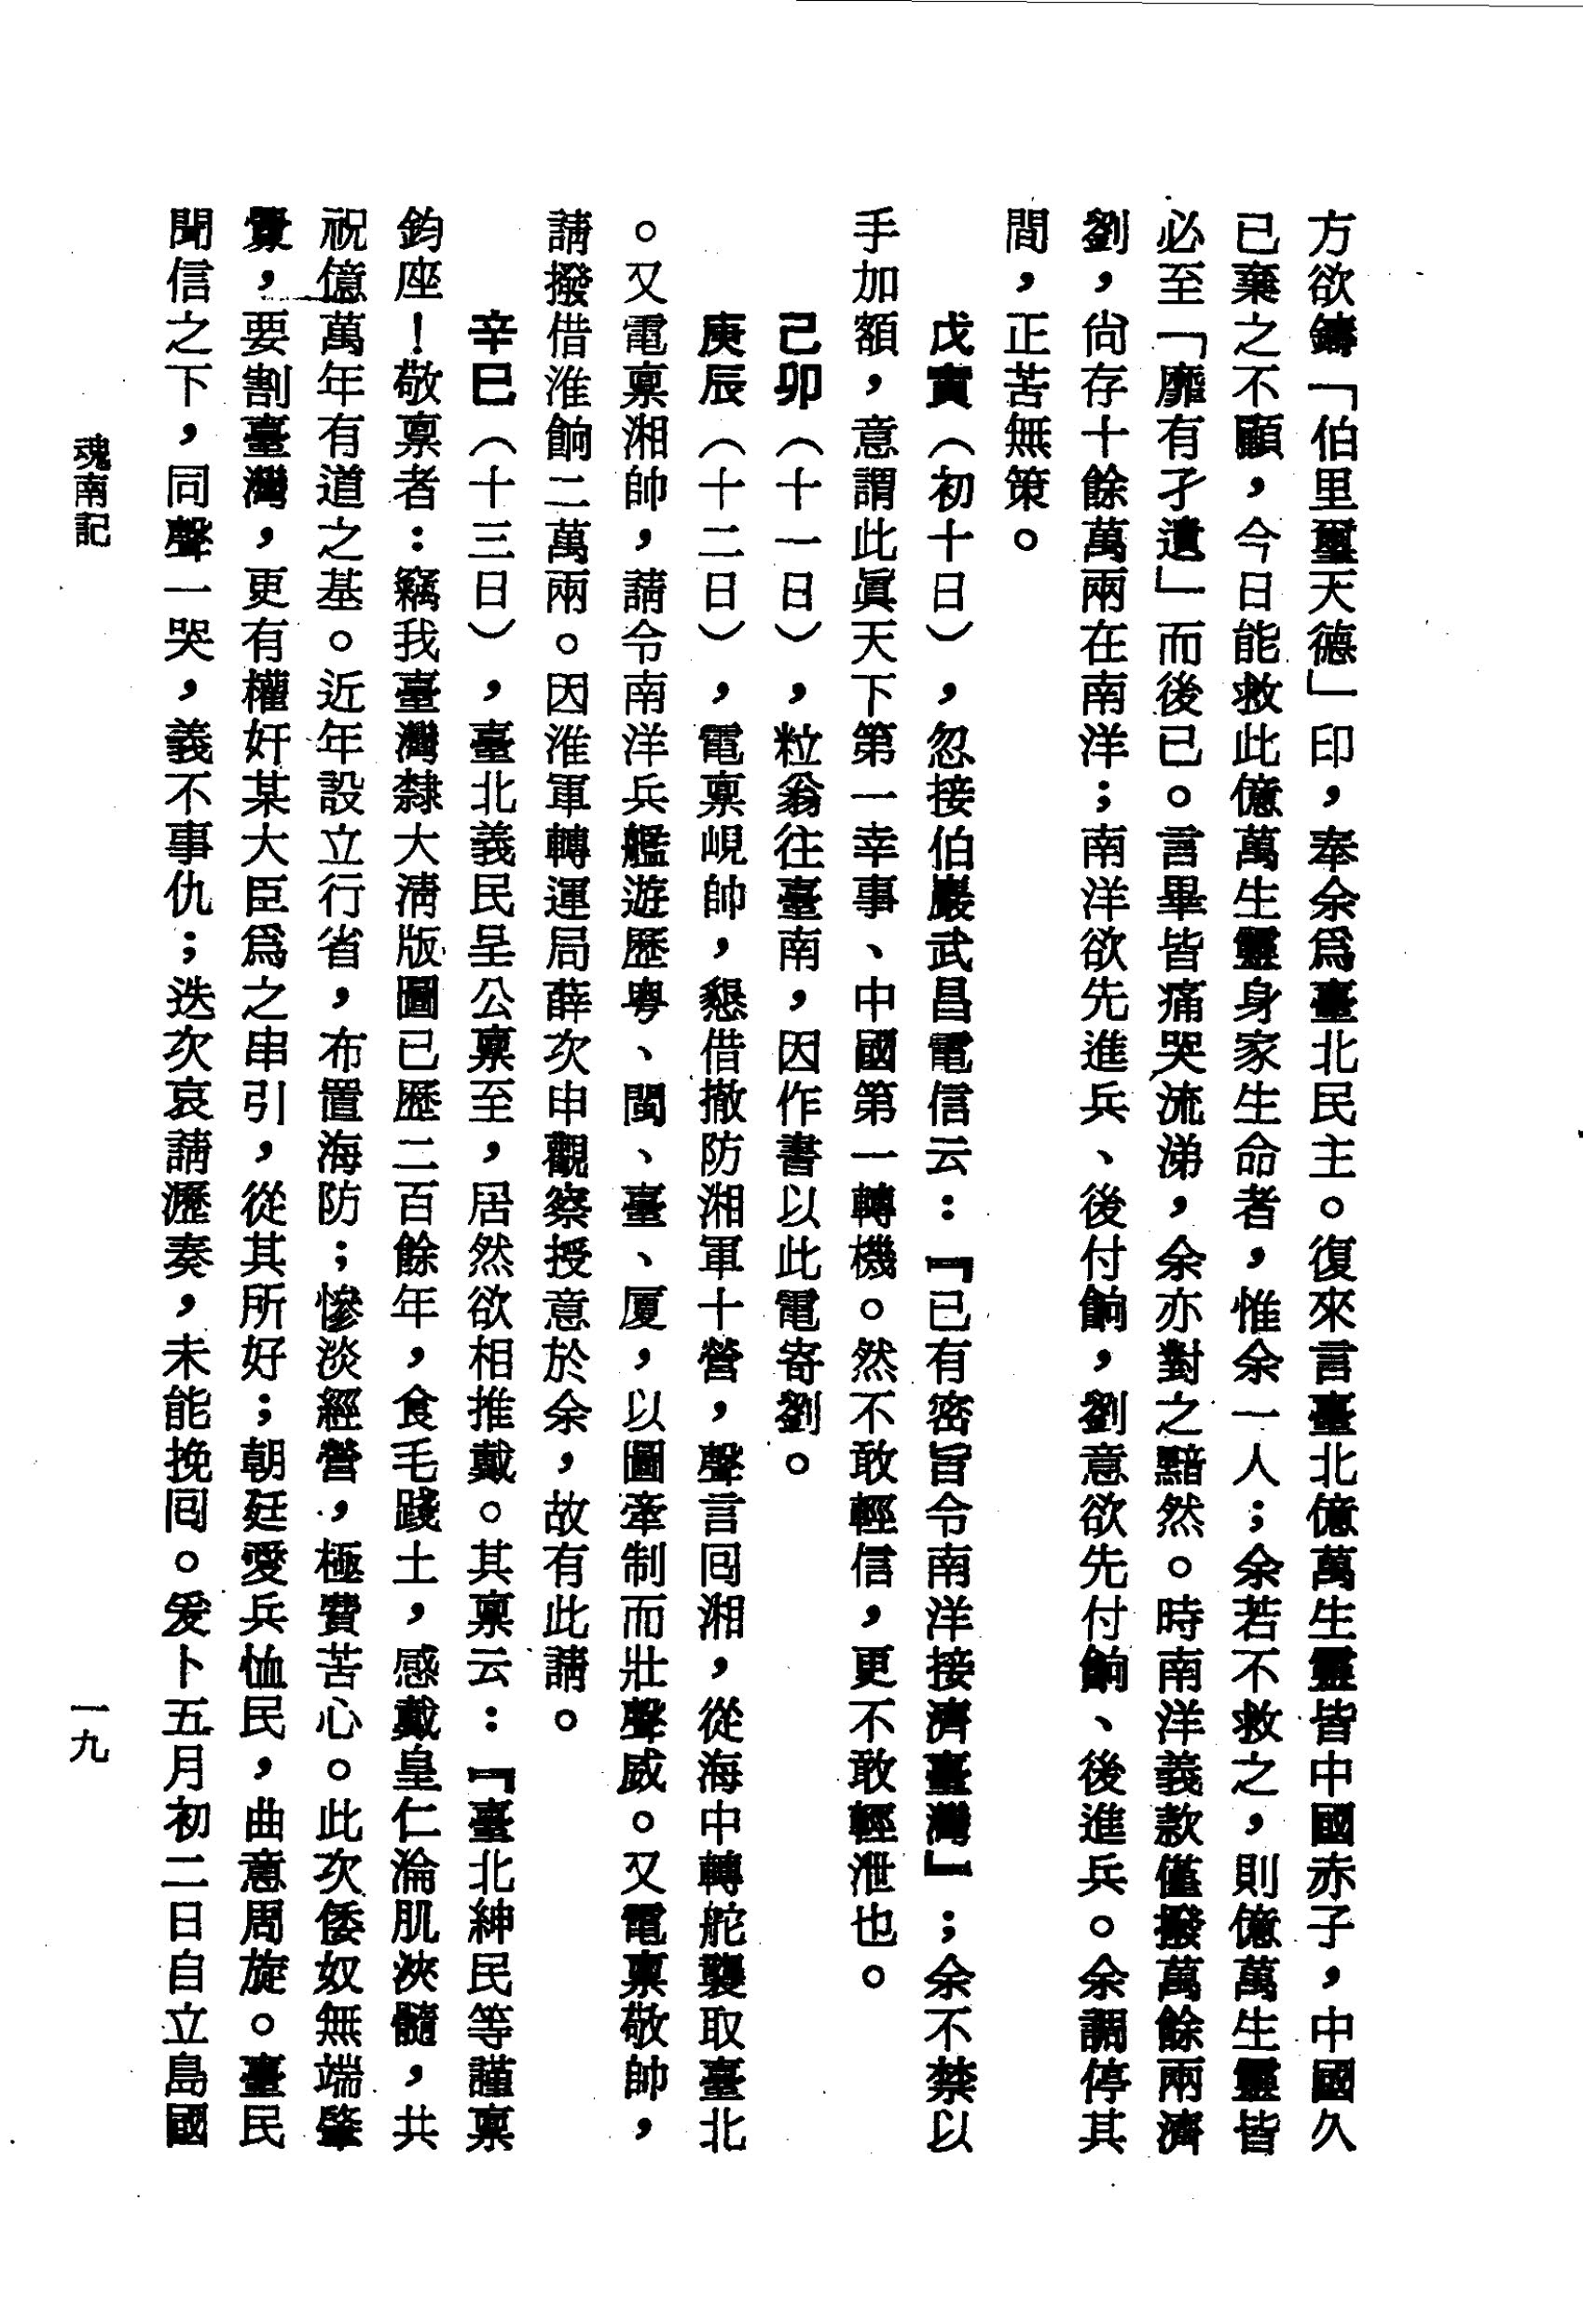 方欲鑄「伯里璽天德」印，奉余爲臺北民主。復來言臺北億萬生靈皆中國赤子，中國久
已棄之不顧，今日能救此億萬生靈身家生命者，惟余一人；余若不救之，則億萬生靈皆
必至「靡有孑遺」而後已。言畢皆痛哭流涕，余亦對之黯然。時南洋義款僅撥萬餘兩濟
劉，尙存十餘萬兩在南洋；南洋欲先進兵、後付餉，劉意欲先付餉、後進兵。余調停其
間，正苦無策。
戊寅（初十日），忽接伯嚴武昌電信云：『已有密旨令南洋接濟臺灣』；余不禁以
手加額，意謂此眞天下第一幸事、中國第一轉機。然不敢輕信，更不敢輕泄也。
己卯（十一日），粒翁往臺南，因作書以此電寄劉。
庚辰（十二日），電稟峴帥，懇借撤防湘軍十營，聲言囘湘，從海中轉舵襲取臺北
。又電稟湘帥，請令南洋兵艦遊歷粵、閩、臺、厦，以圖牽制而壯聲威。又電稟敬帥，
請撥借淮餉二萬兩。因淮軍轉運局薛次申觀察授意於余，故有此請。
辛巳（十三日），臺北義民呈公稟至，居然欲相推戴。其稟云：『臺北紳民等謹稟
鈞座！敬稟者：竊我臺灣隸大淸版圖已歷二百餘年，食毛踐土，感戴皇仁淪肌浹髓，共
祝億萬年有道之基。近年設立行省，布置海防；慘淡經營，極費苦心。此次倭奴無端肇
釁，要割臺灣，更有權奸某大臣爲之串引，從其所好；朝廷愛兵恤民，曲意周旋。臺民
聞信之下，同聲一哭，義不事仇；迭次哀請瀝奏，未能挽囘。爰卜五月初二日自立島國
魂南記
一九